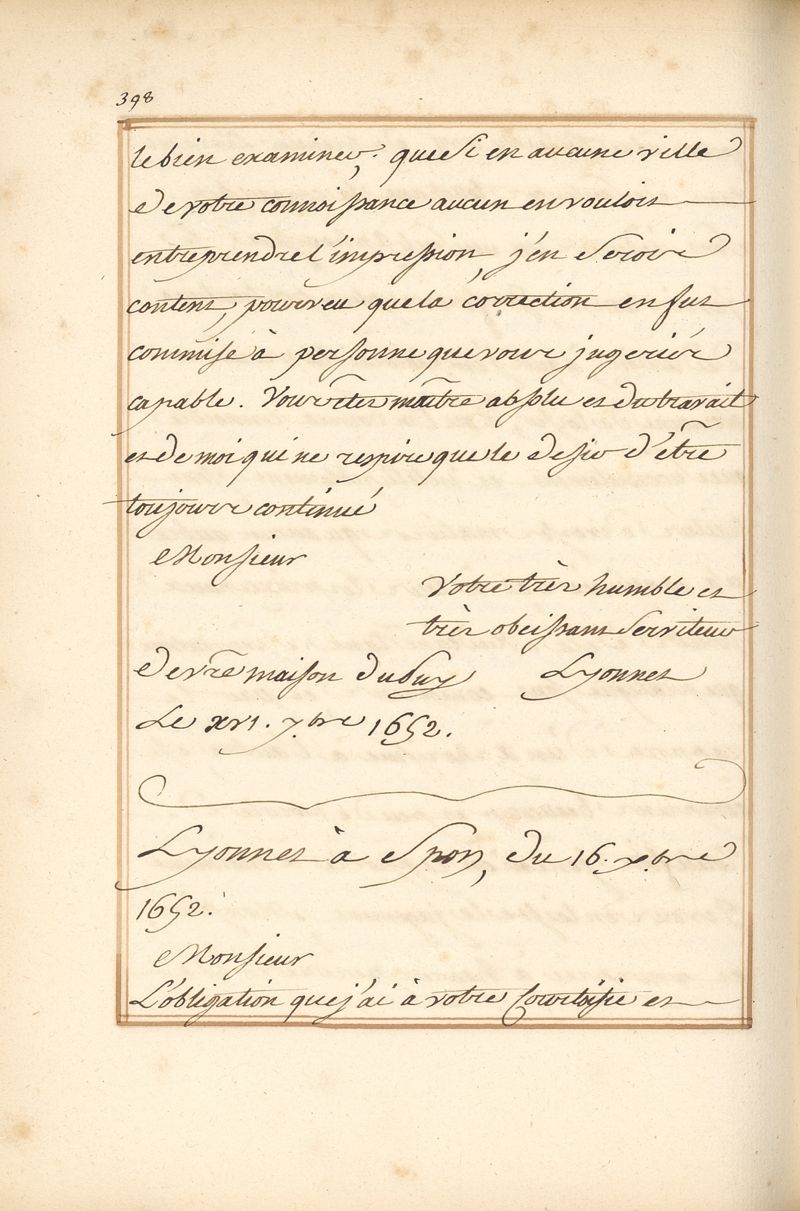 398
le bien examiner; que si en aucune ville
de votre connoissance aucun en vouloit
entreprendre l'impression, j'en serois
content, pourveu que la correction en fut
commise à personne que vous jugeriés
capable. Vous êtes maître absolu et du travail
et de moi qui ne respire que le desir d'être
toujours continué
Monsieur
Votre très humble et
très obeissant serviteur
De vre maison du Puy Lyonnet
Le xvi. 7bre 1652.
Lyonnet à Spon, du 16. xbre
1652.
Monsieur
L'obligation que j'ai à votre Courtoisie et